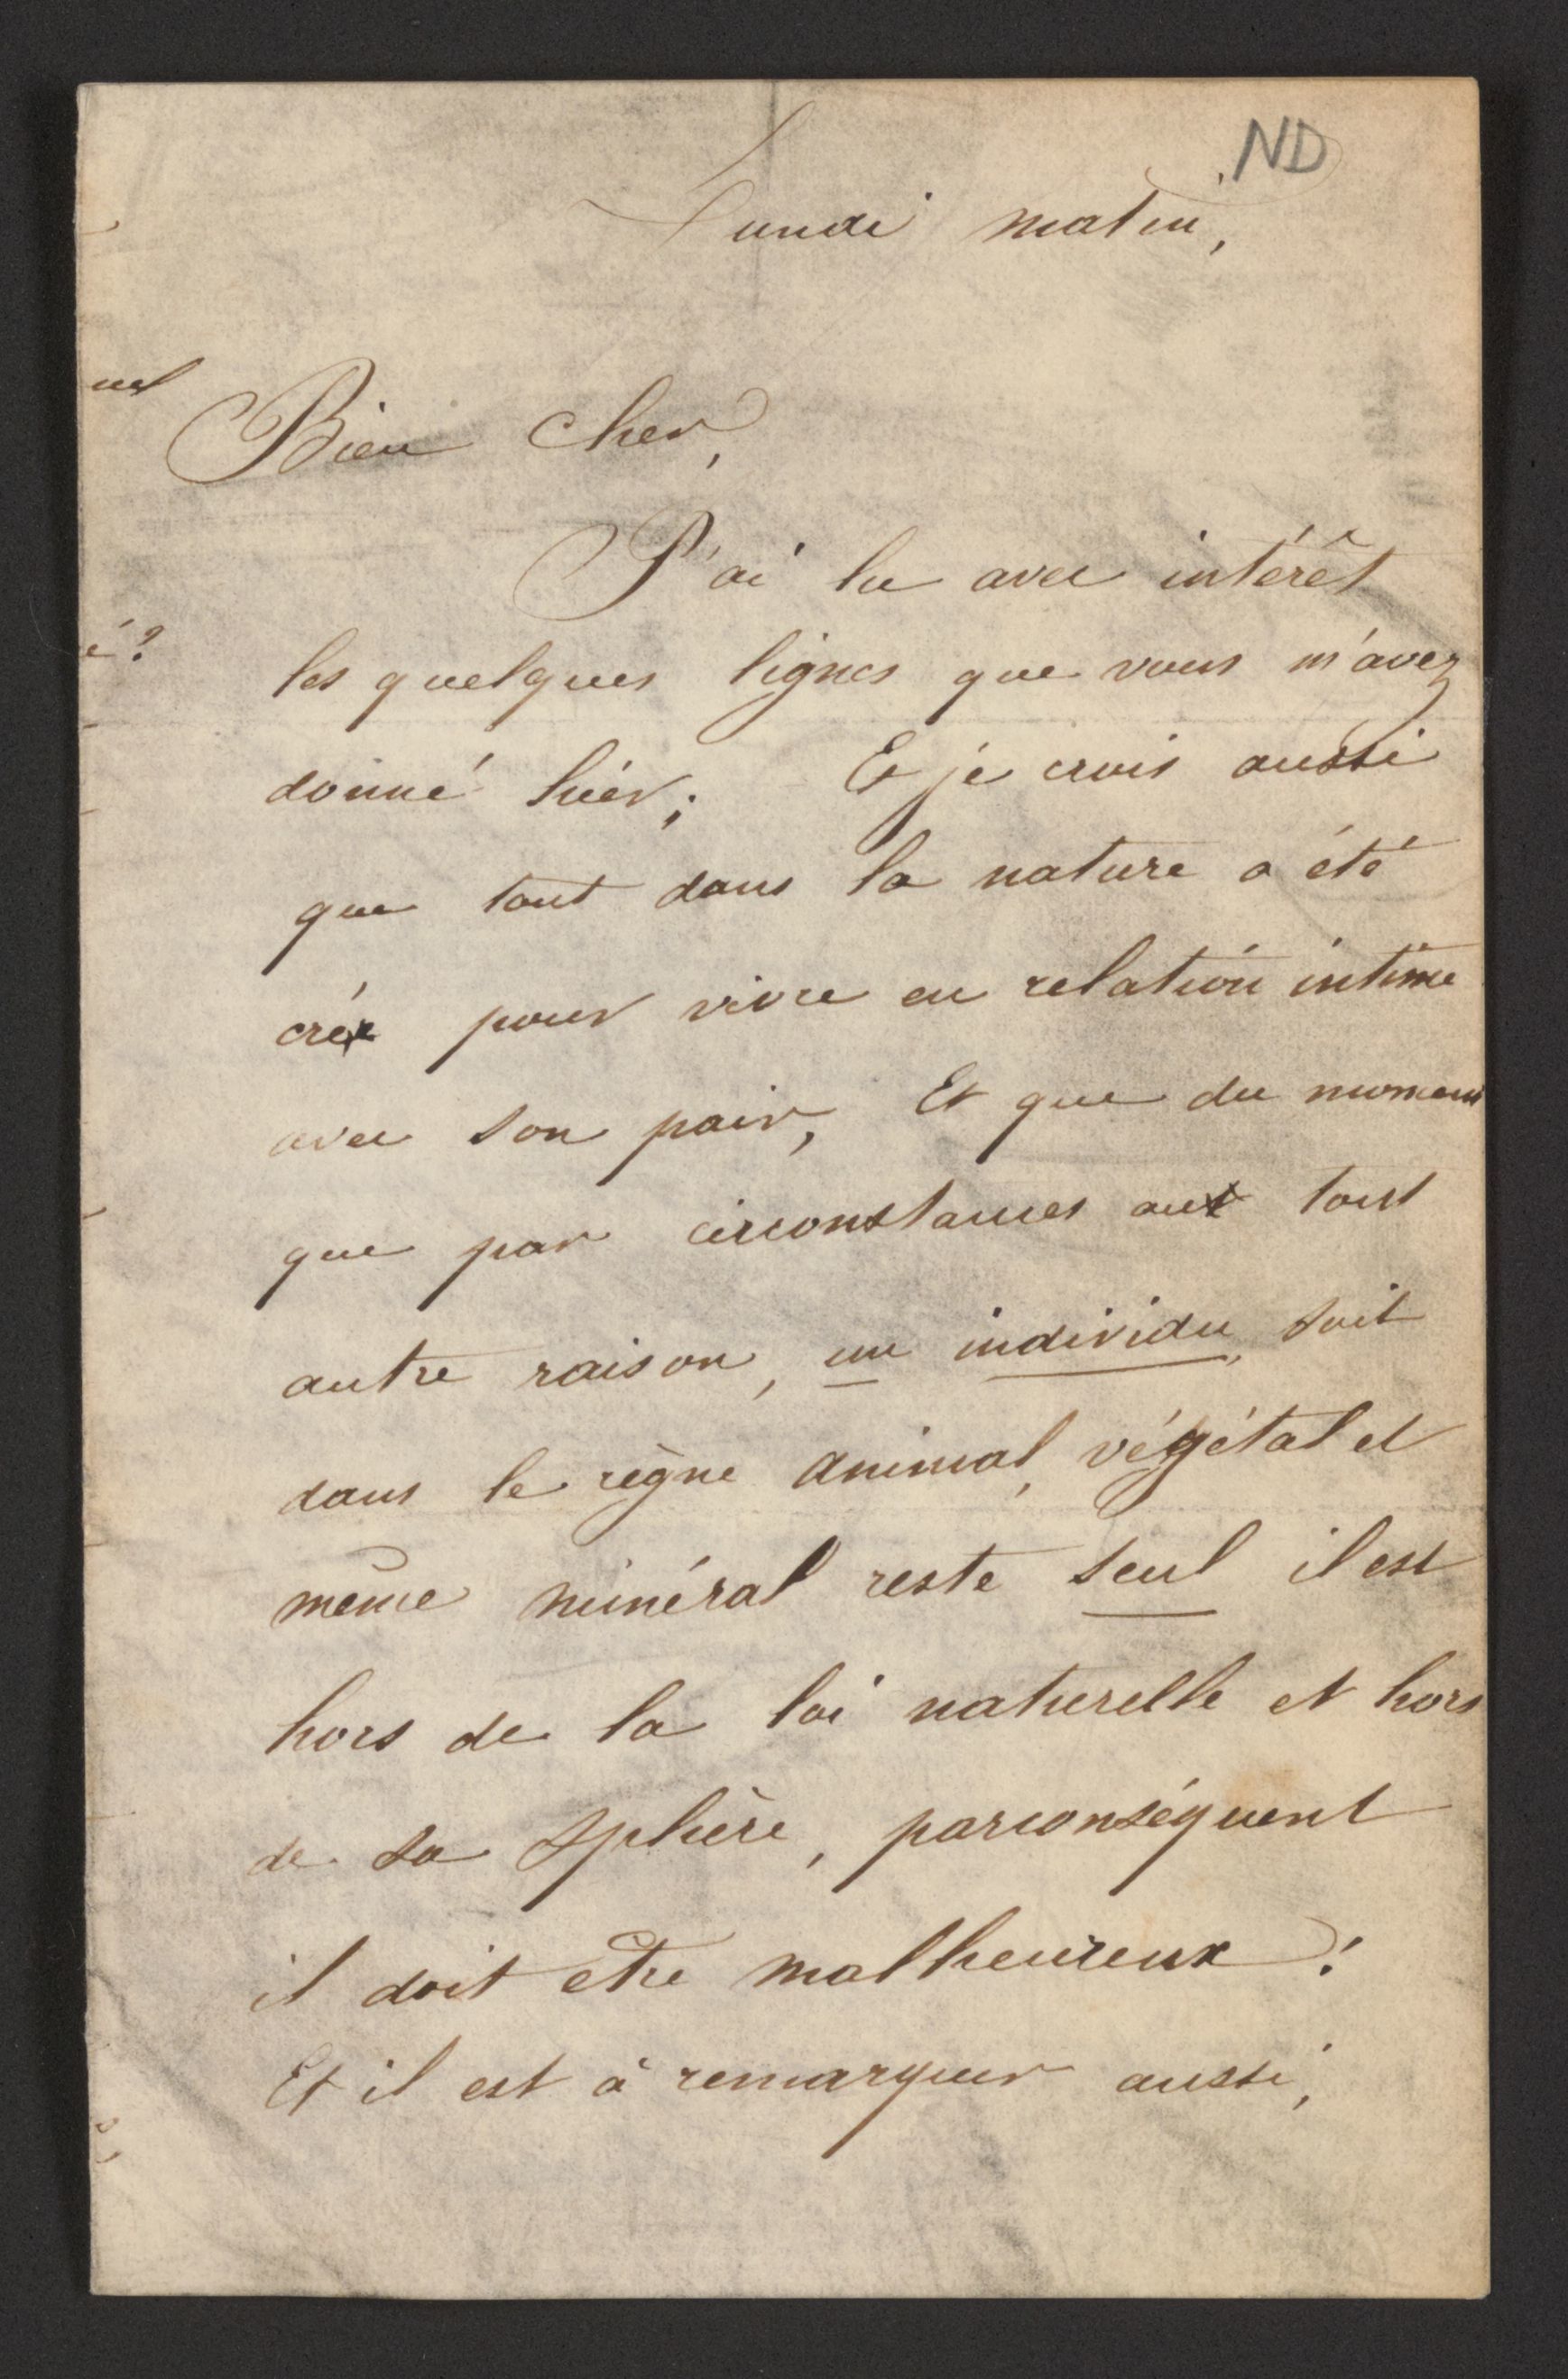 ND
Lundi matin,
Bien cher,
J'ai lu avec intérêt
les quelques lignes que vous m'avez
donné hier; Et je crois aussi
que tout dans la nature a été
créé pour vivre en relation intime
avec son pair, Et que du moment
que par circonstances out tout
autre raison, un individu, soit
dans le règne animal, végétal et
même minéral reste seul il est
hors de la loi naturelle et hors
de sa sphère, parconséquent
il doit être malheureux!
Et il est à remarquer aussi,
é?